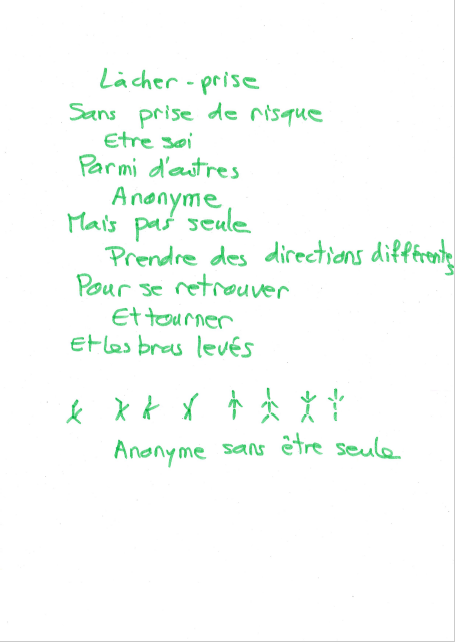 Lâcher-prise
Sans prise de risque
Etre soi
Parmi d'autres
Anonyme
Mais pas seule
Prendre des directions différentes
Pour se retrouver
Et tourner
Et les bras levés
Anonyme sans être seule